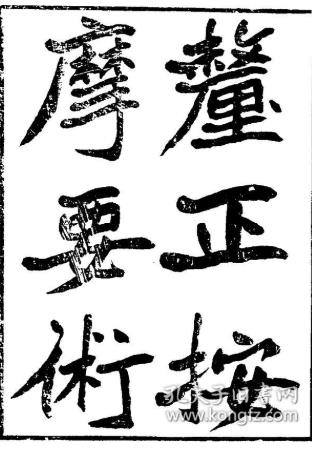 釐正按
摩要術
孔夫子旧书网
www.kongfz.com